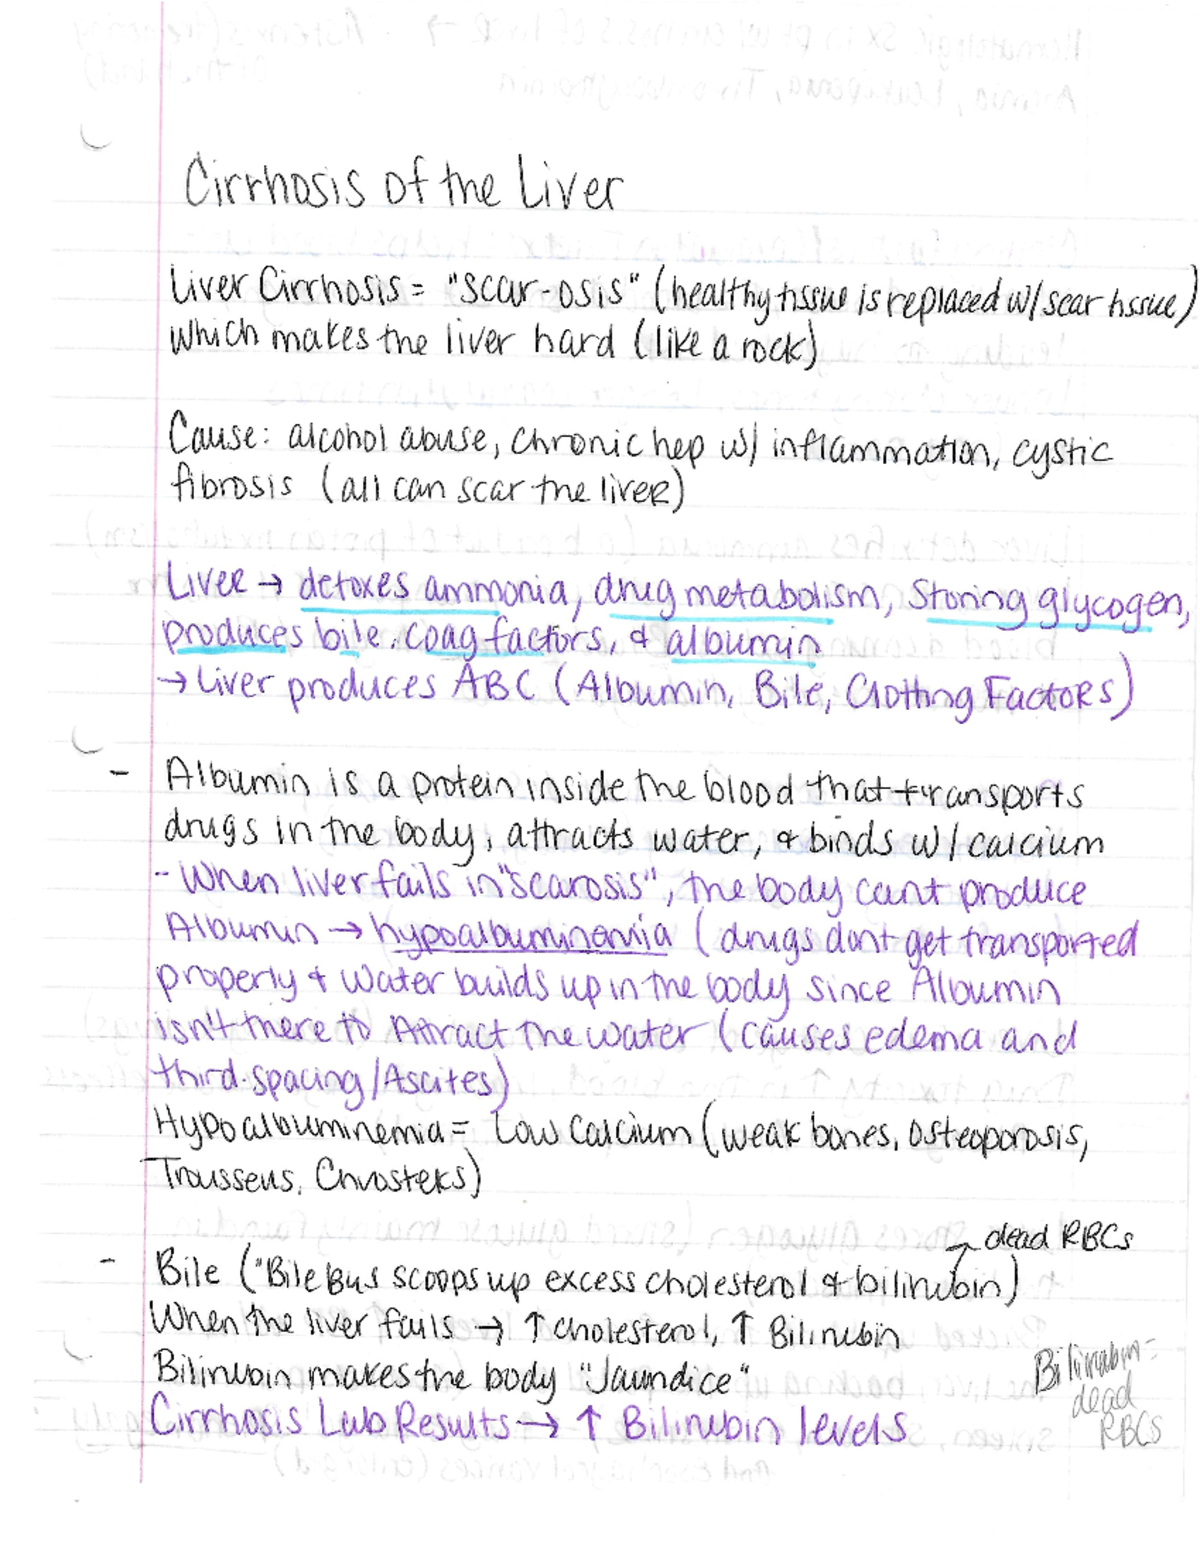 Cirrhosis of the Liver
Liver Cirrhosis = "scar-osis" (healthy tissue is replaced w/ scar tissue)
which makes the liver hard (like a rock)
Cause: alcohol abuse, chronic hep w/ inflammation, cystic
fibrosis (all can scar the liver)
Liver → detoxes ammonia, drug metabolism, storing glycogen,
produces bile, coag factors, & albumin
→ Liver produces ABC (Albumin, Bile, Clotting Factors)
- Albumin is a protein inside the blood that transports
drugs in the body, attracts water, & binds w/ calcium
- When liver fails in "scarosis", the body cant produce
Albumin → hypoalbuminemia (drugs dont get transported
properly + water builds up in the body since Albumin
isn't there to Attract the water (causes edema and
third-spacing/Ascites)
Hypoalbuminemia = Low Calcium (weak bones, osteoporosis,
Trousseus, Chvosteks)
dead RBCs
- Bile ("Bile Bus scoops up excess cholesterol & bilirubin)
When the liver fails → ↑ cholesterol, ↑ Bilirubin
Bilirubin makes the body "Jaundice"
Bilirubin =
dead
RBCs
Cirrhosis Lab Results → ↑ Bilirubin levels